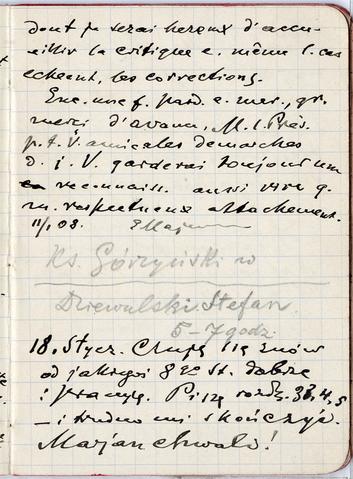 dont je serai hereux d'accu-
eillir la critique e. même l. cas
echeant, les corrections.
Enc. une f. pard. e. mer., gr.
merci d'avanc, M. l. Prés.
p. t. V. amicales demarches
D. j. V. garderai toujours um
reconnaiss. aussi vive q.
m. respectueux attachement.
11/I 08. EMaj
Ks. Górzyński w
Drewulski Stefan
5-7 godz.
18. Stycz. Czuję się znów
od jakiegoś 8 st. dobrze
i pracuję. Piszę rozdz. 3, 4, 5
– i trudno mi skończyć.
Marjan chwali!